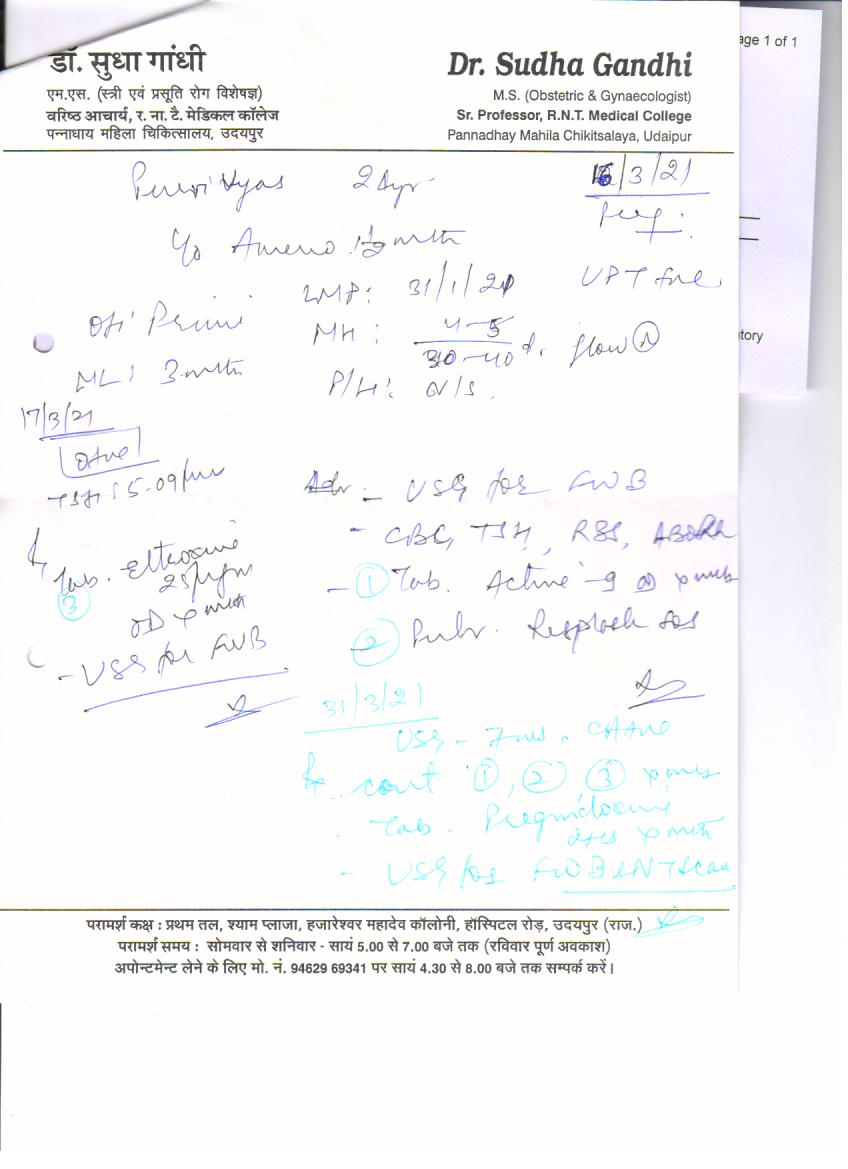 age 1 of 1
डॉ. सुधा गांधी
एम.एस. (स्त्री एवं प्रसूति रोग विशेषज्ञ)
वरिष्ठ आचार्य, र. ना. टै. मेडिकल कॉलेज
पन्नाधाय महिला चिकित्सालय, उदयपुर
Dr. Sudha Gandhi
M.S. (Obstetric & Gynaecologist)
Sr. Professor, R.N.T. Medical College
Pannadhay Mahila Chikitsalaya, Udaipur
Vyas
16/3/21
Ameno. 1½ mth
LMP: 31/1/21 UPT
Primi
MH: 4-5
30-40 d. flow N
ML: 3 mth
P/H: N/S.
tory
17/3/21
TSH: 5.09
Tab. Eltroxine
25
③
OD x mth
- USG for FWB
Adv - USG for FWB
- CBC, TSH, RBS, ABORh
- ① Tab. Active-9 OD x mth
② Pulv. sos
31/3/21
USG - 7
Rx cont ①, ② ③ x mth
Tab. Pregnidoxine
x mth
- USG for FWB & NT Scan
परामर्श कक्ष : प्रथम तल, श्याम प्लाजा, हजारेश्वर महादेव कॉलोनी, हॉस्पिटल रोड़, उदयपुर (राज.)
परामर्श समय : सोमवार से शनिवार - सायं 5.00 से 7.00 बजे तक (रविवार पूर्ण अवकाश)
अपोन्टमेन्ट लेने के लिए मो. नं. 94629 69341 पर सायं 4.30 से 8.00 बजे तक सम्पर्क करें।